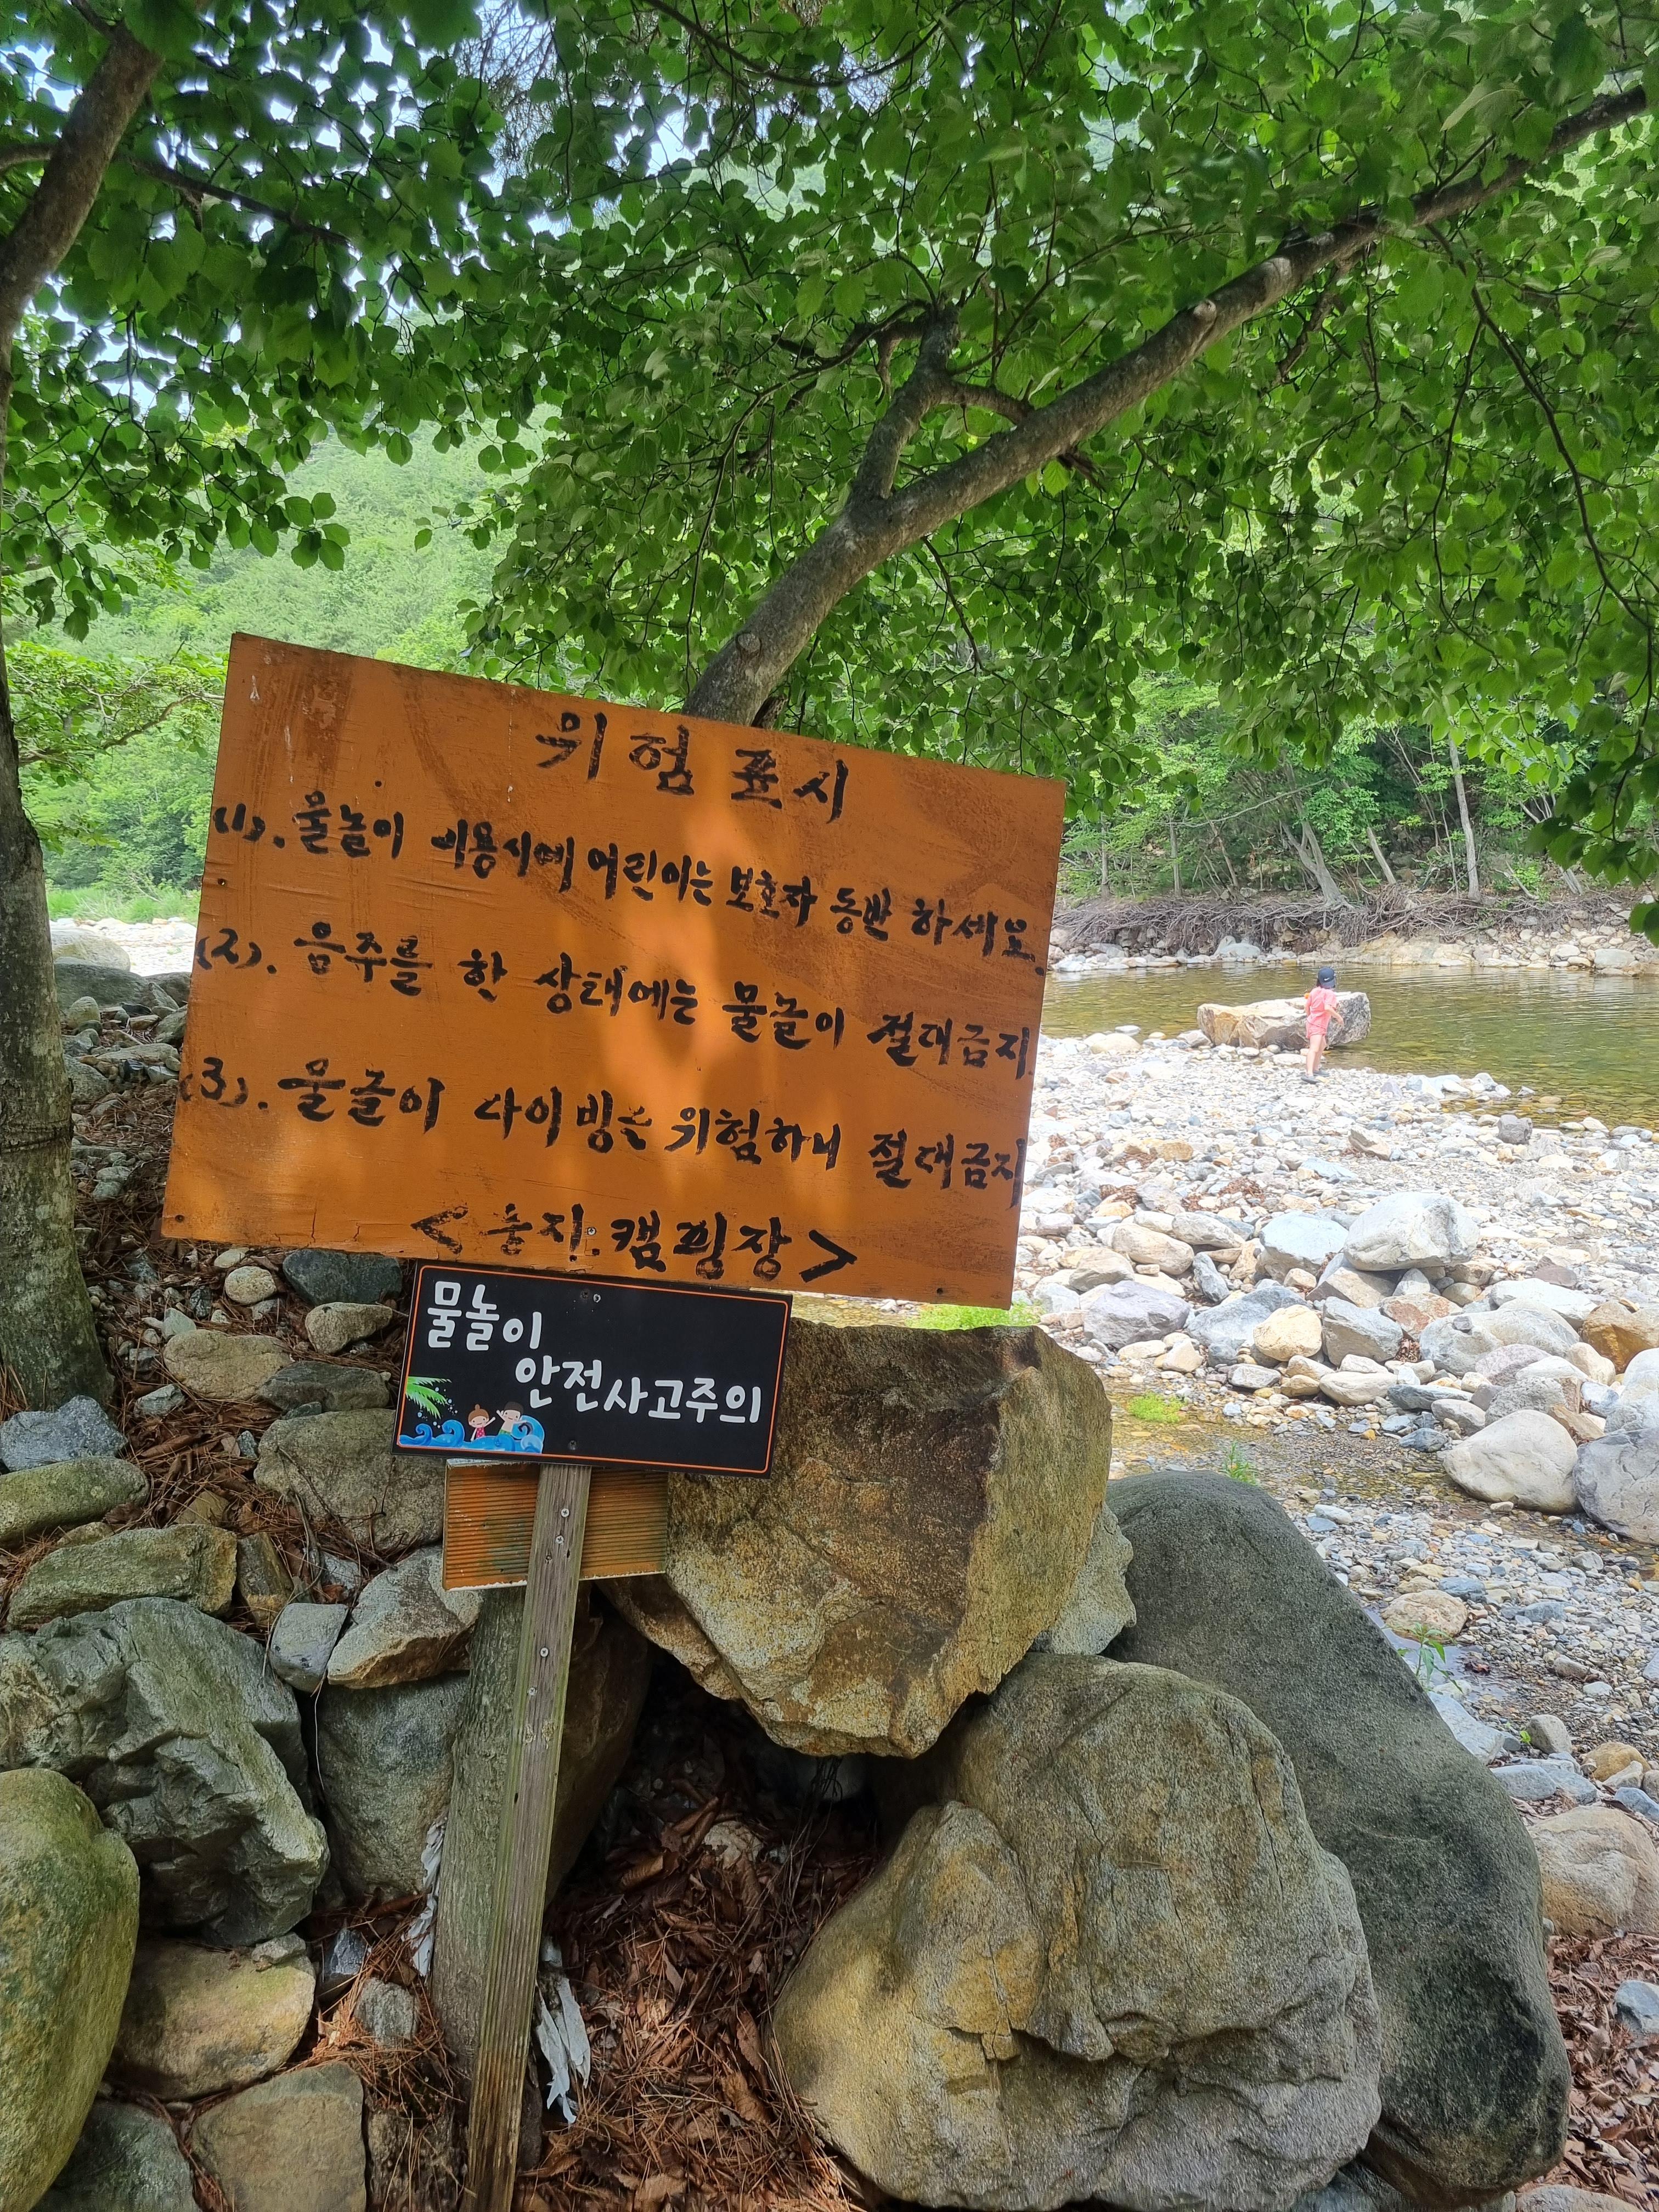 위험 표시
(1). 물놀이 이용시에 어린이는 보호자 동반 하세요.
(2). 음주를 한 상태에는 물놀이 절대금지.
(3). 물놀이 다이빙은 위험하니 절대금지
<송지.캠핑장>
물놀이
안전사고주의